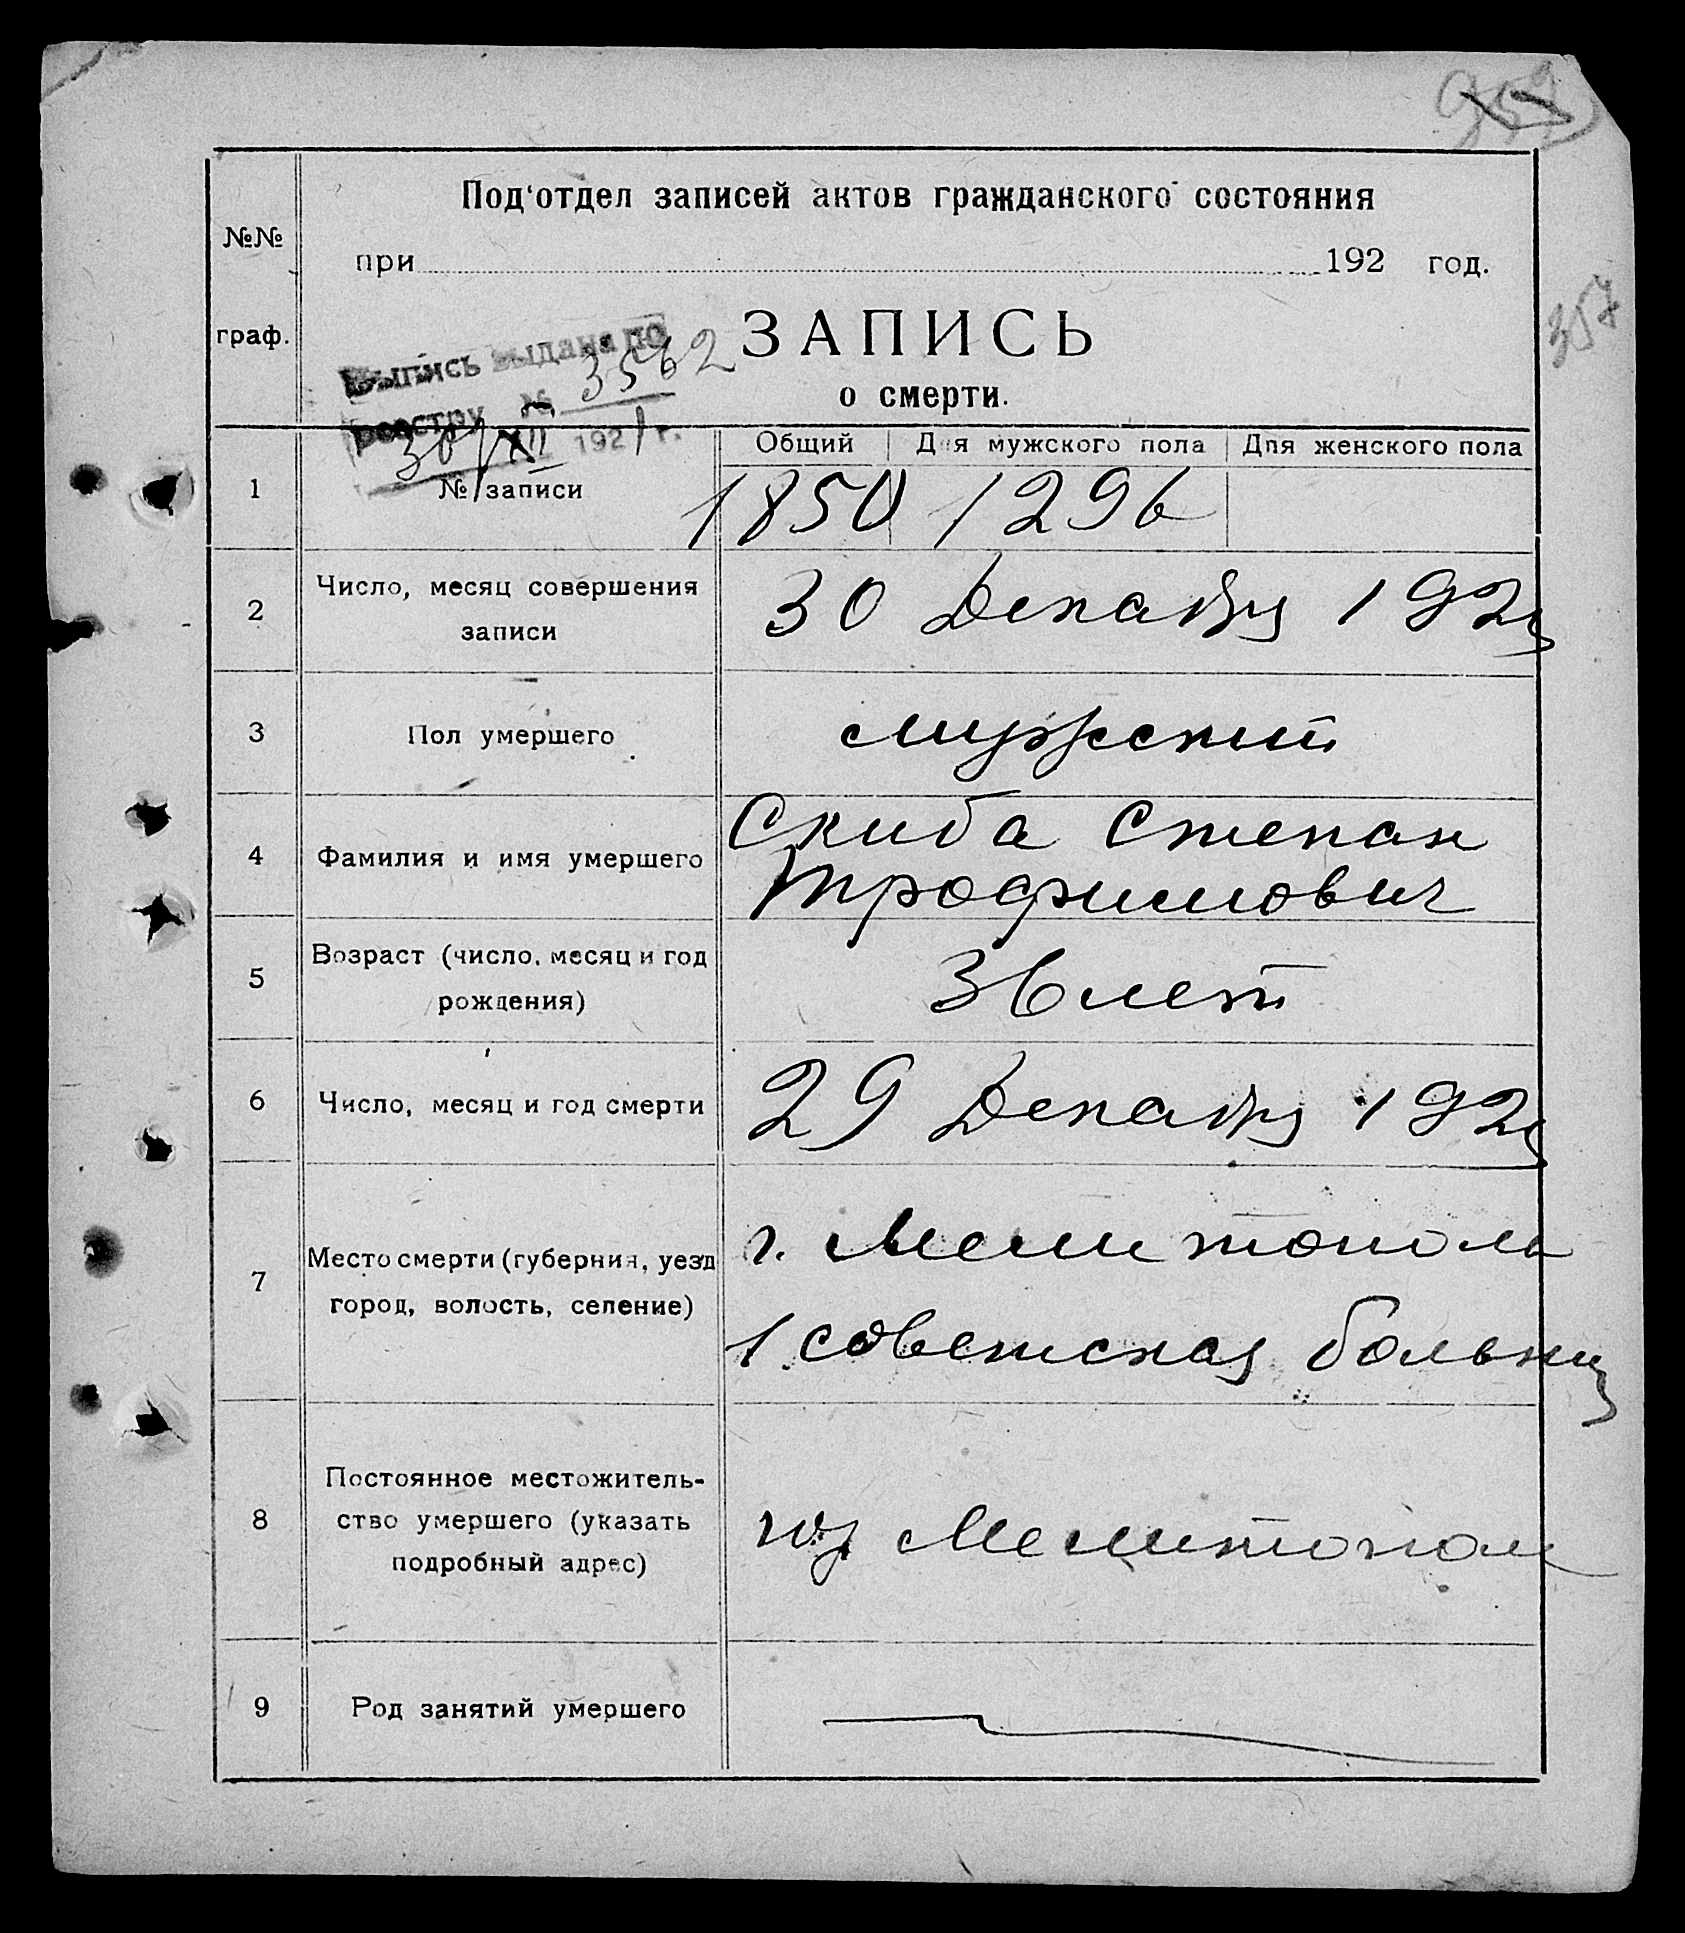 №№
граф.
Под'отдел записей актов гражданского состояния
при 192 год.
ЗАПИСЬ
о смерти.
Выпись выдана по
реестру № 3562
30/XII 1921 г.
357
Общий Для мужского пола Для женского пола
1 № записи 1850 1296
2 Число, месяц совершения
записи
30 Декабря 192
3 Пол умершего мужской
4 Фамилия и имя умершего
Скиба Степан
Трофимович
5 Возраст (число, месяц и год
рождения)
36 лет
6 Число, месяц и год смерти 29 Декабря 192
7 Место смерти (губерния, уезд
город, волость, селение)
г. Мелитополь
1. советская больниц
8 Постоянное местожитель-
ство умершего (указать
подробный адрес)
Мелитополь
9 Род занятий умершего